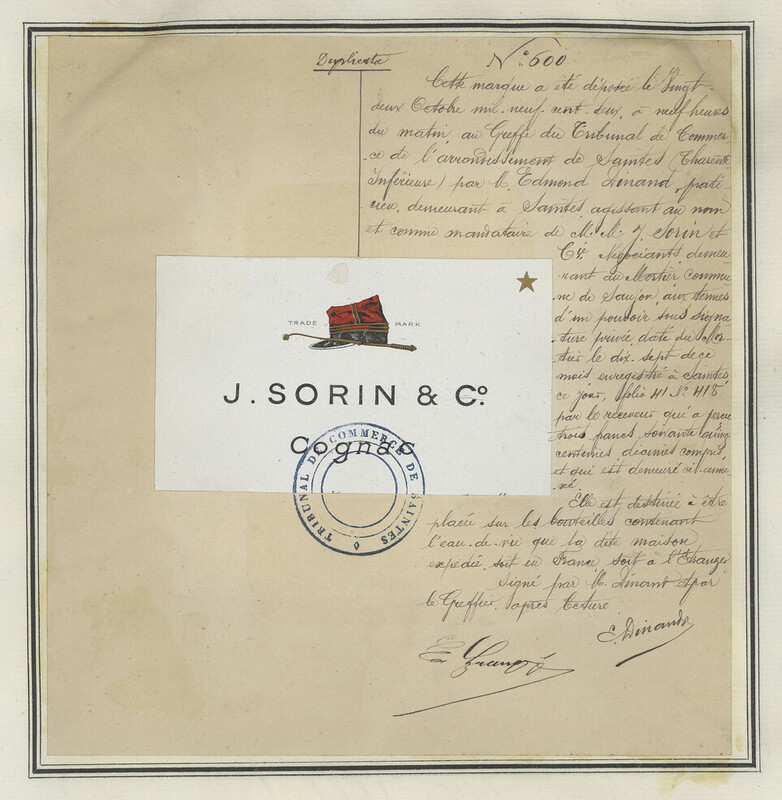 Duplicata
N° 600
Cette marque a été déposée le Vingt-
deux Octobre mil-neuf-cent-deux, à neuf heures
du matin, au Greffe du Tribunal de Commer-
ce de l'arrondissement de Saintes (Charente
Inférieure) par M. Edmond Dinand, prati-
cien, demeurant à Saintes, agissant au nom
et comme mandataire de M. M. J. Sorin et
Cie, Négociants, demeu-
rant au Mortier commu-
ne de Saujon, aux termes
d'un pouvoir sous signa-
ture privée, daté du Mor-
tier le dix-sept de ce
mois, enregistré à Saintes
ce jour, folio 41 N° 418
par le receveur qui a perçu
trois francs soixante quinze
centimes, décimes compris,
et qui est demeuré ci-anne-
xé.
Elle est destinée à être
placée sur les bouteilles contenant
l'eau-de-vie que la dite maison
expédie, soit en France, soit à l'Etranger
Signé par M. Dinand & par
le Greffier, après lecture
E. Dinand
TRADE MARK
J. SORIN & Co.
Cognac
TRIBUNAL DE COMMERCE DE SAINTES